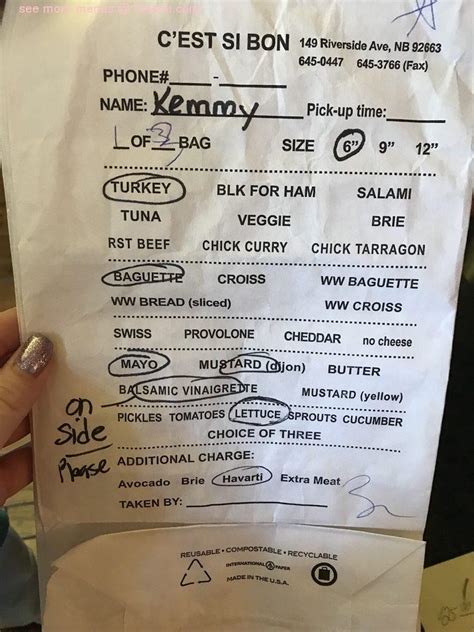 C'EST SI BON 149 Riverside Ave, NB 92663
645-0447 645-3766 (Fax)
PHONE#____-____
NAME: Kemmy Pick-up time:____
1 OF 2 BAG SIZE 6" 9" 12"
TURKEY BLK FOR HAM SALAMI
TUNA VEGGIE BRIE
RST BEEF CHICK CURRY CHICK TARRAGON
BAGUETTE CROISS WW BAGUETTE
WW BREAD (sliced) WW CROISS
SWISS PROVOLONE CHEDDAR no cheese
MAYO MUSTARD (dijon) BUTTER
BALSAMIC VINAIGRETTE MUSTARD (yellow)
on side Please
PICKLES TOMATOES LETTUCE SPROUTS CUCUMBER
CHOICE OF THREE
ADDITIONAL CHARGE:
Avocado Brie Havarti Extra Meat
TAKEN BY: ____
REUSABLE • COMPOSTABLE • RECYCLABLE
INTERNATIONAL PAPER
MADE IN THE U.S.A.